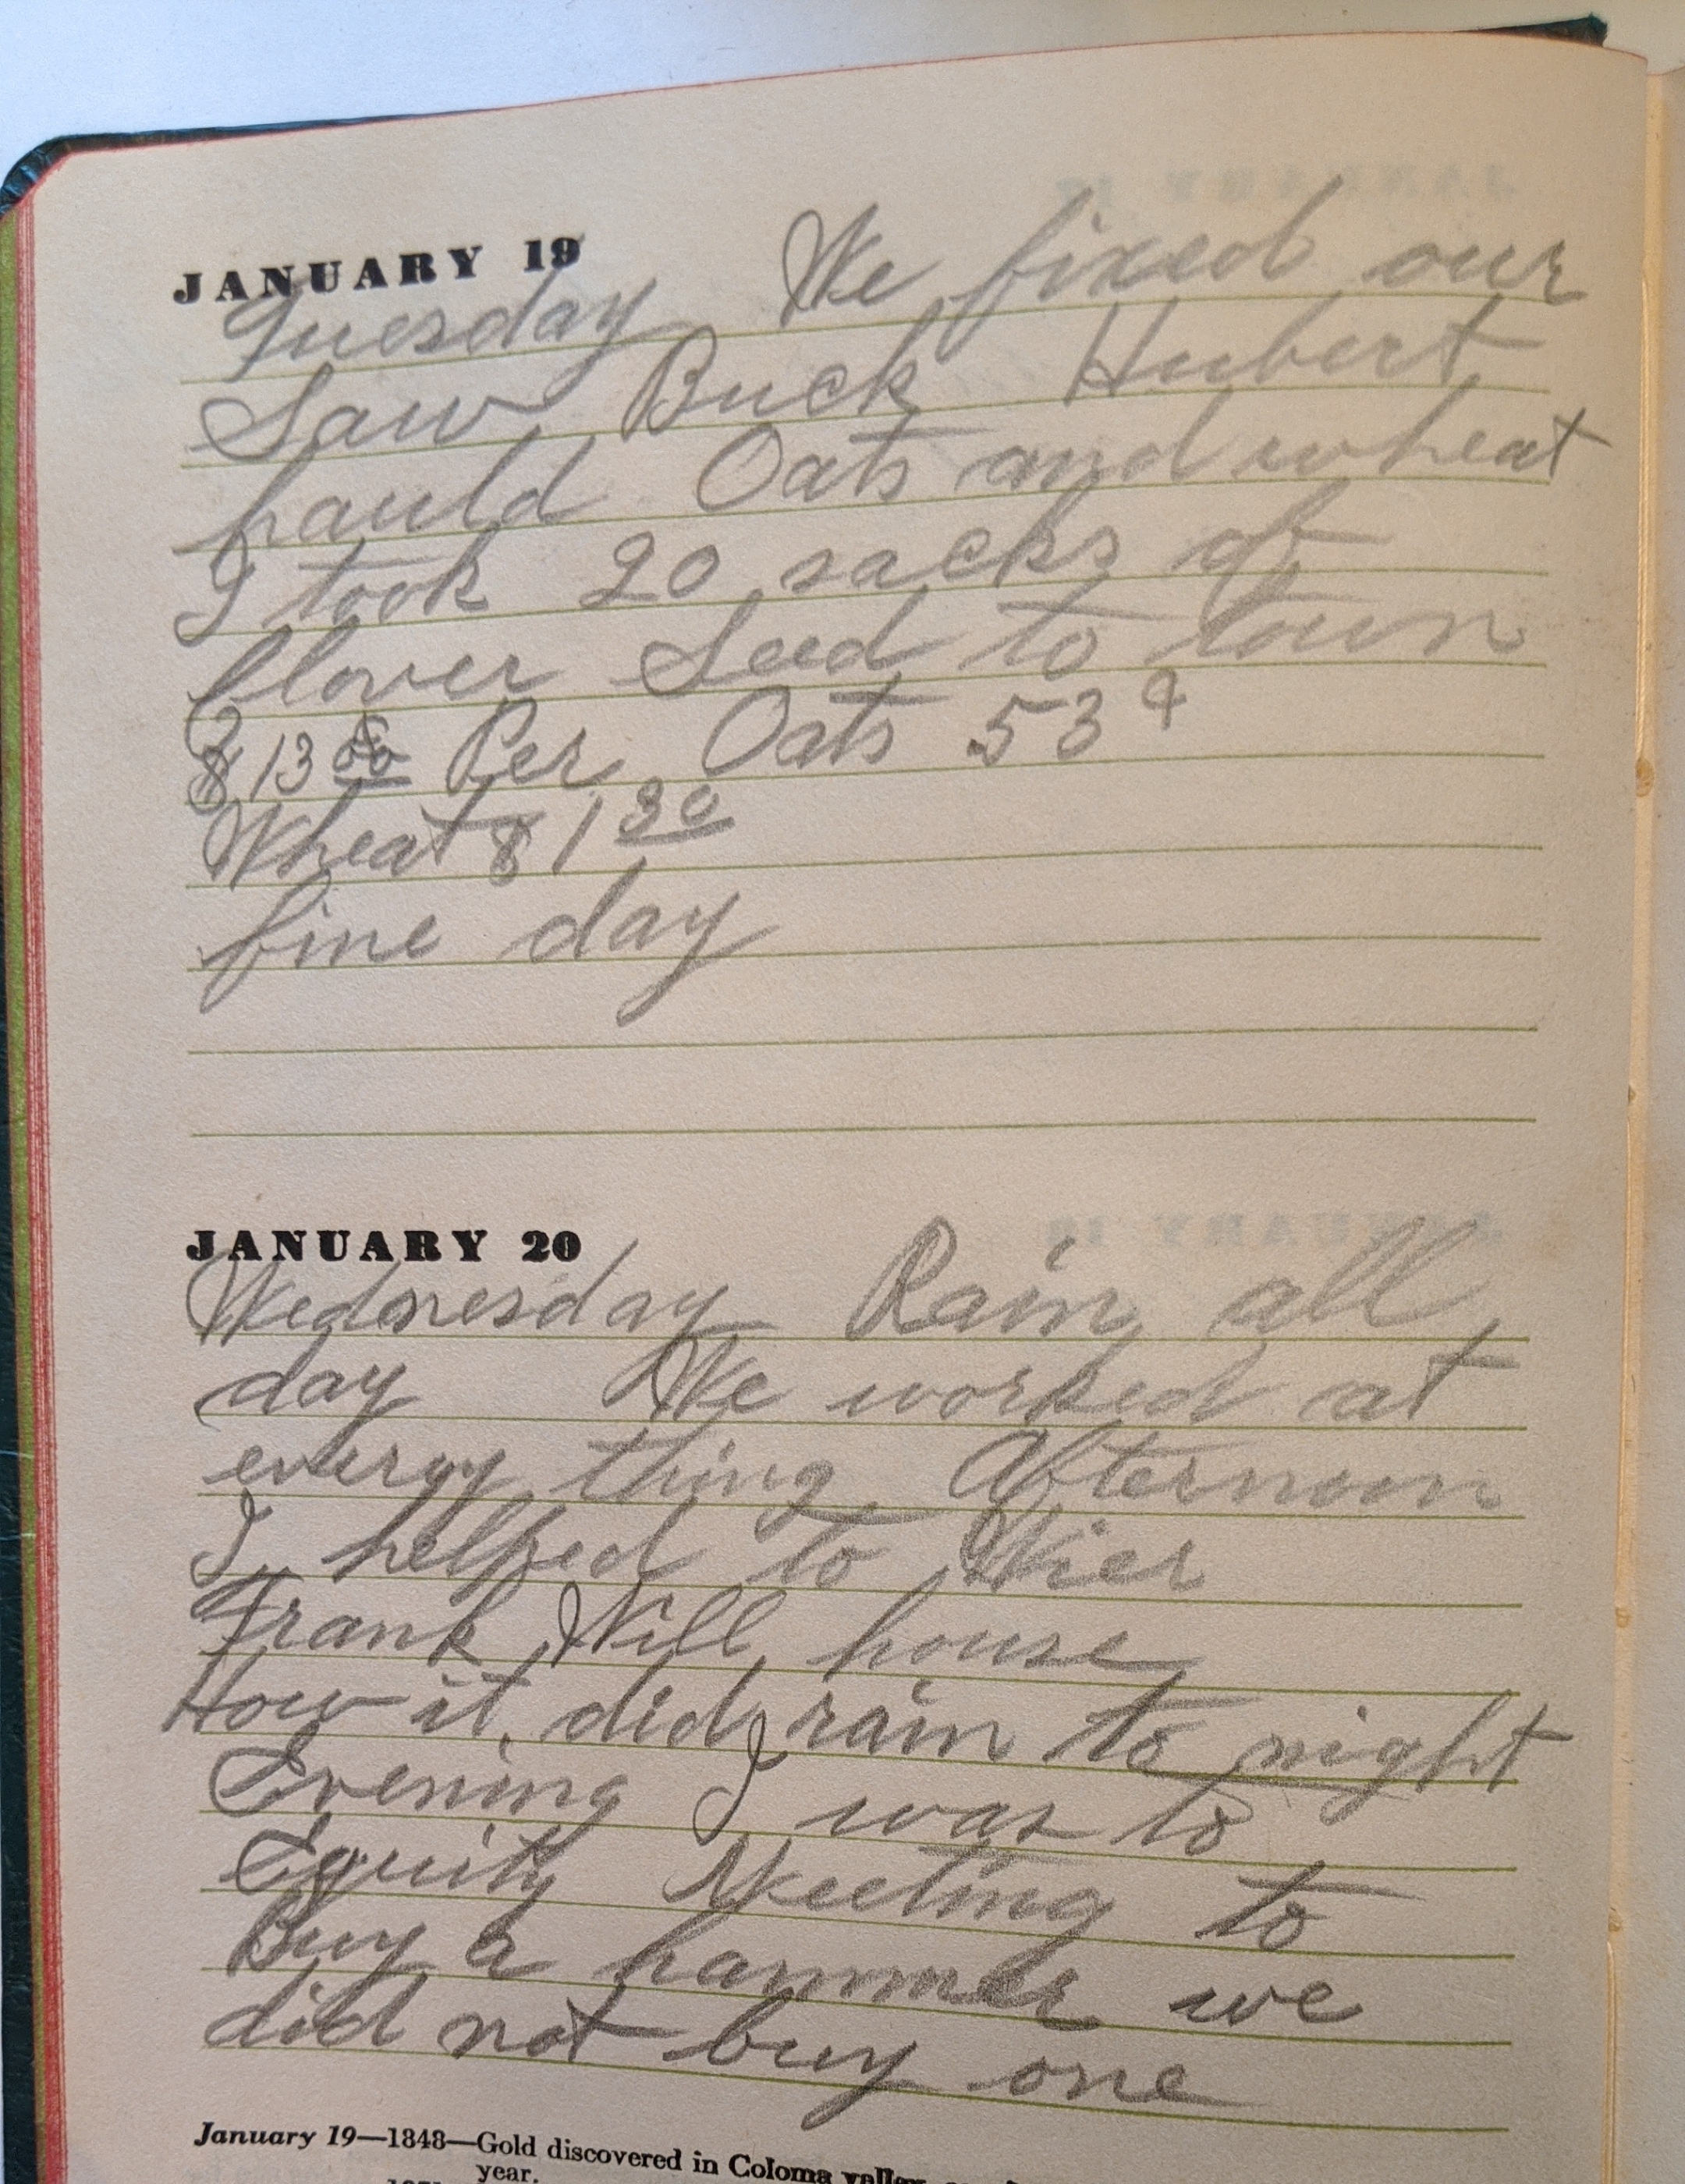 JANUARY 19
Tuesday We fixed our
Saw Buck Hubert
hauld Oats and wheat
I took 20 sacks of
Clover Seed to town
$13 00 Per Oats 53 ¢
Wheat $1 30
fine day
JANUARY 20
Wednesday Rain all
day We worked at
every thing Afternoon
I helped to Wier
Frank Will house
How it did rain to night
Evening I was to
Equity Meeting to
Buy a hammer we
did not buy one
January 19—1848—Gold discovered in Coloma valley
year.